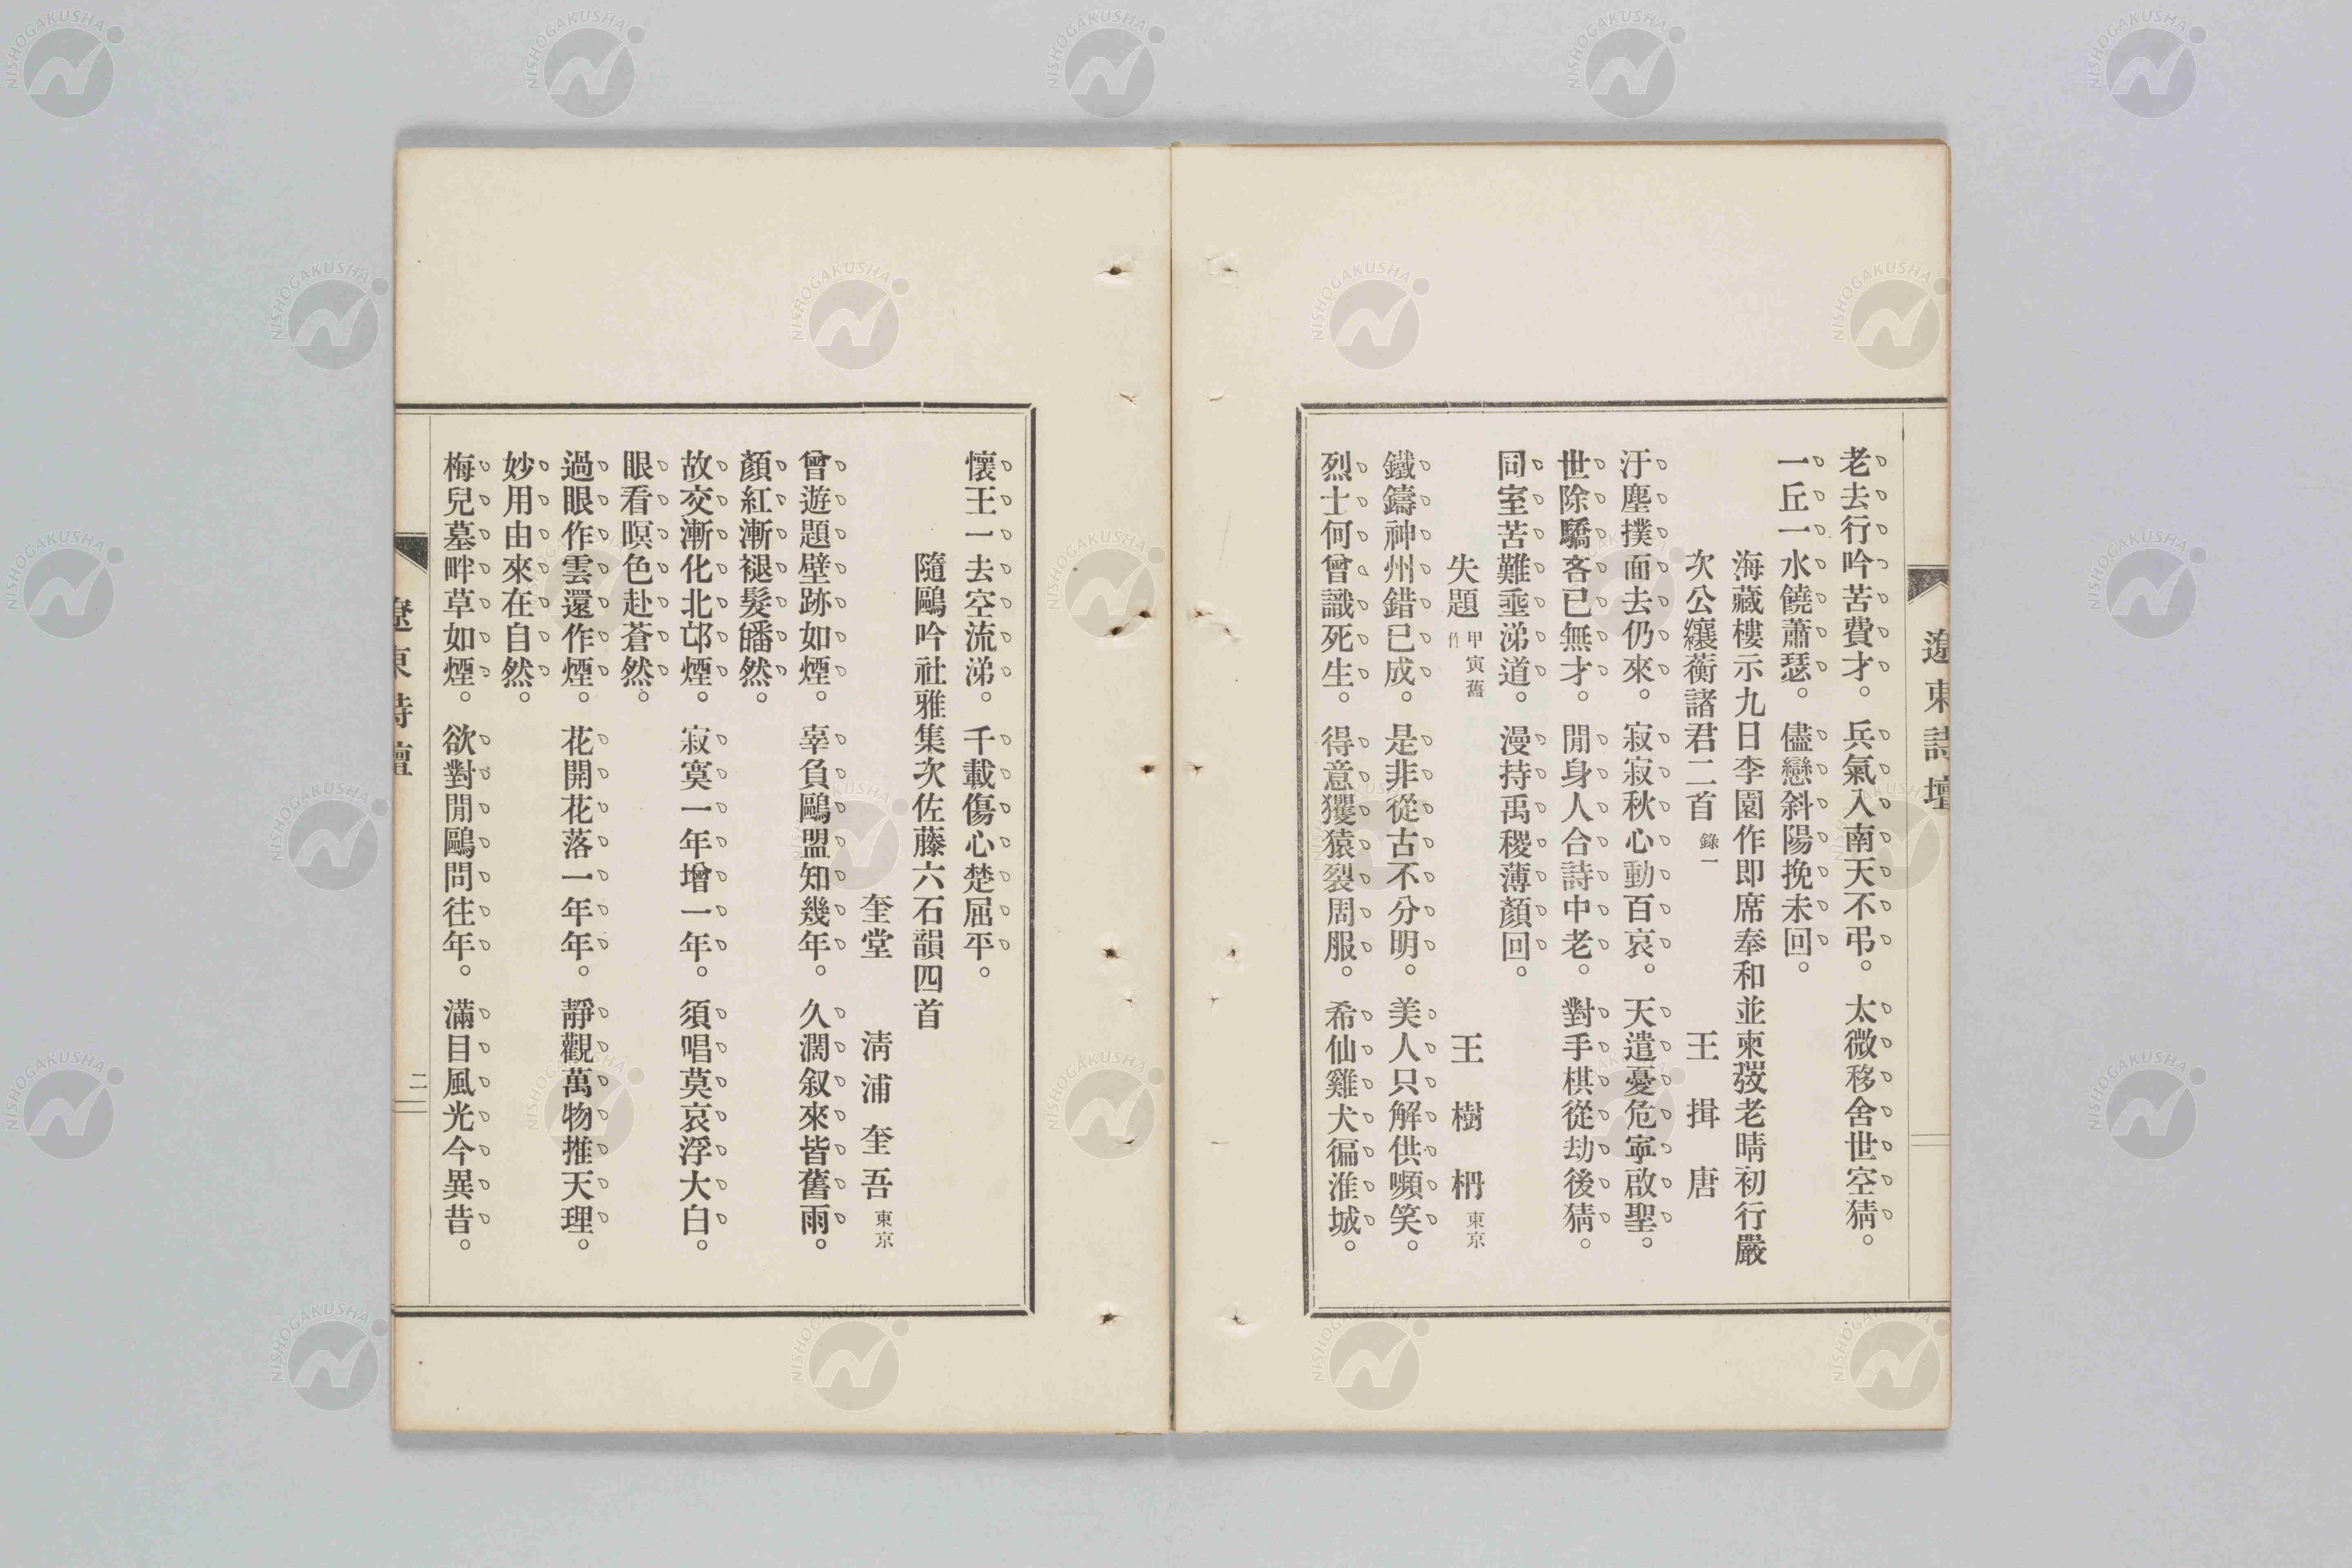 遼東詩壇
老去行吟苦費才。兵氣入南天不弔。太微移舍世空猜。
一丘一水饒蕭瑟。儘戀斜陽挽未回。
海藏樓示九日李園作即席奉和並柬弢老晴初行嚴
次公纕蘅諸君二首 錄一 王揖唐
汙塵撲面去仍來。寂寂秋心動百哀。天遣憂危寧啟聖。
世除驕吝已無才。閒身人合詩中老。對手棋從劫後猜。
同室苦難垂涕道。漫持禹稷薄顏回。
失題 甲寅舊作 王樹枬 東京
鐵鑄神州錯已成。是非從古不分明。美人只解供嚬笑。
烈士何曾識死生。得意玃猿裂周服。希仙雞犬徧淮城。
懷王一去空流涕。千載傷心楚屈平。
隨鷗吟社雅集次佐藤六石韻四首
奎堂 淸浦奎吾 東京
曾遊題壁跡如煙。辜負鷗盟知幾年。久濶叙來皆舊雨。
顏紅漸褪髮皤然。
故交漸化北邙煙。寂寞一年增一年。須唱莫哀浮大白。
眼看暝色赴蒼然。
過眼作雲還作煙。花開花落一年年。靜觀萬物推天理。
妙用由來在自然。
梅兒墓畔草如煙。欲對閒鷗問往年。滿目風光今異昔。
遼東詩壇
二
NISHOGAKUSHA